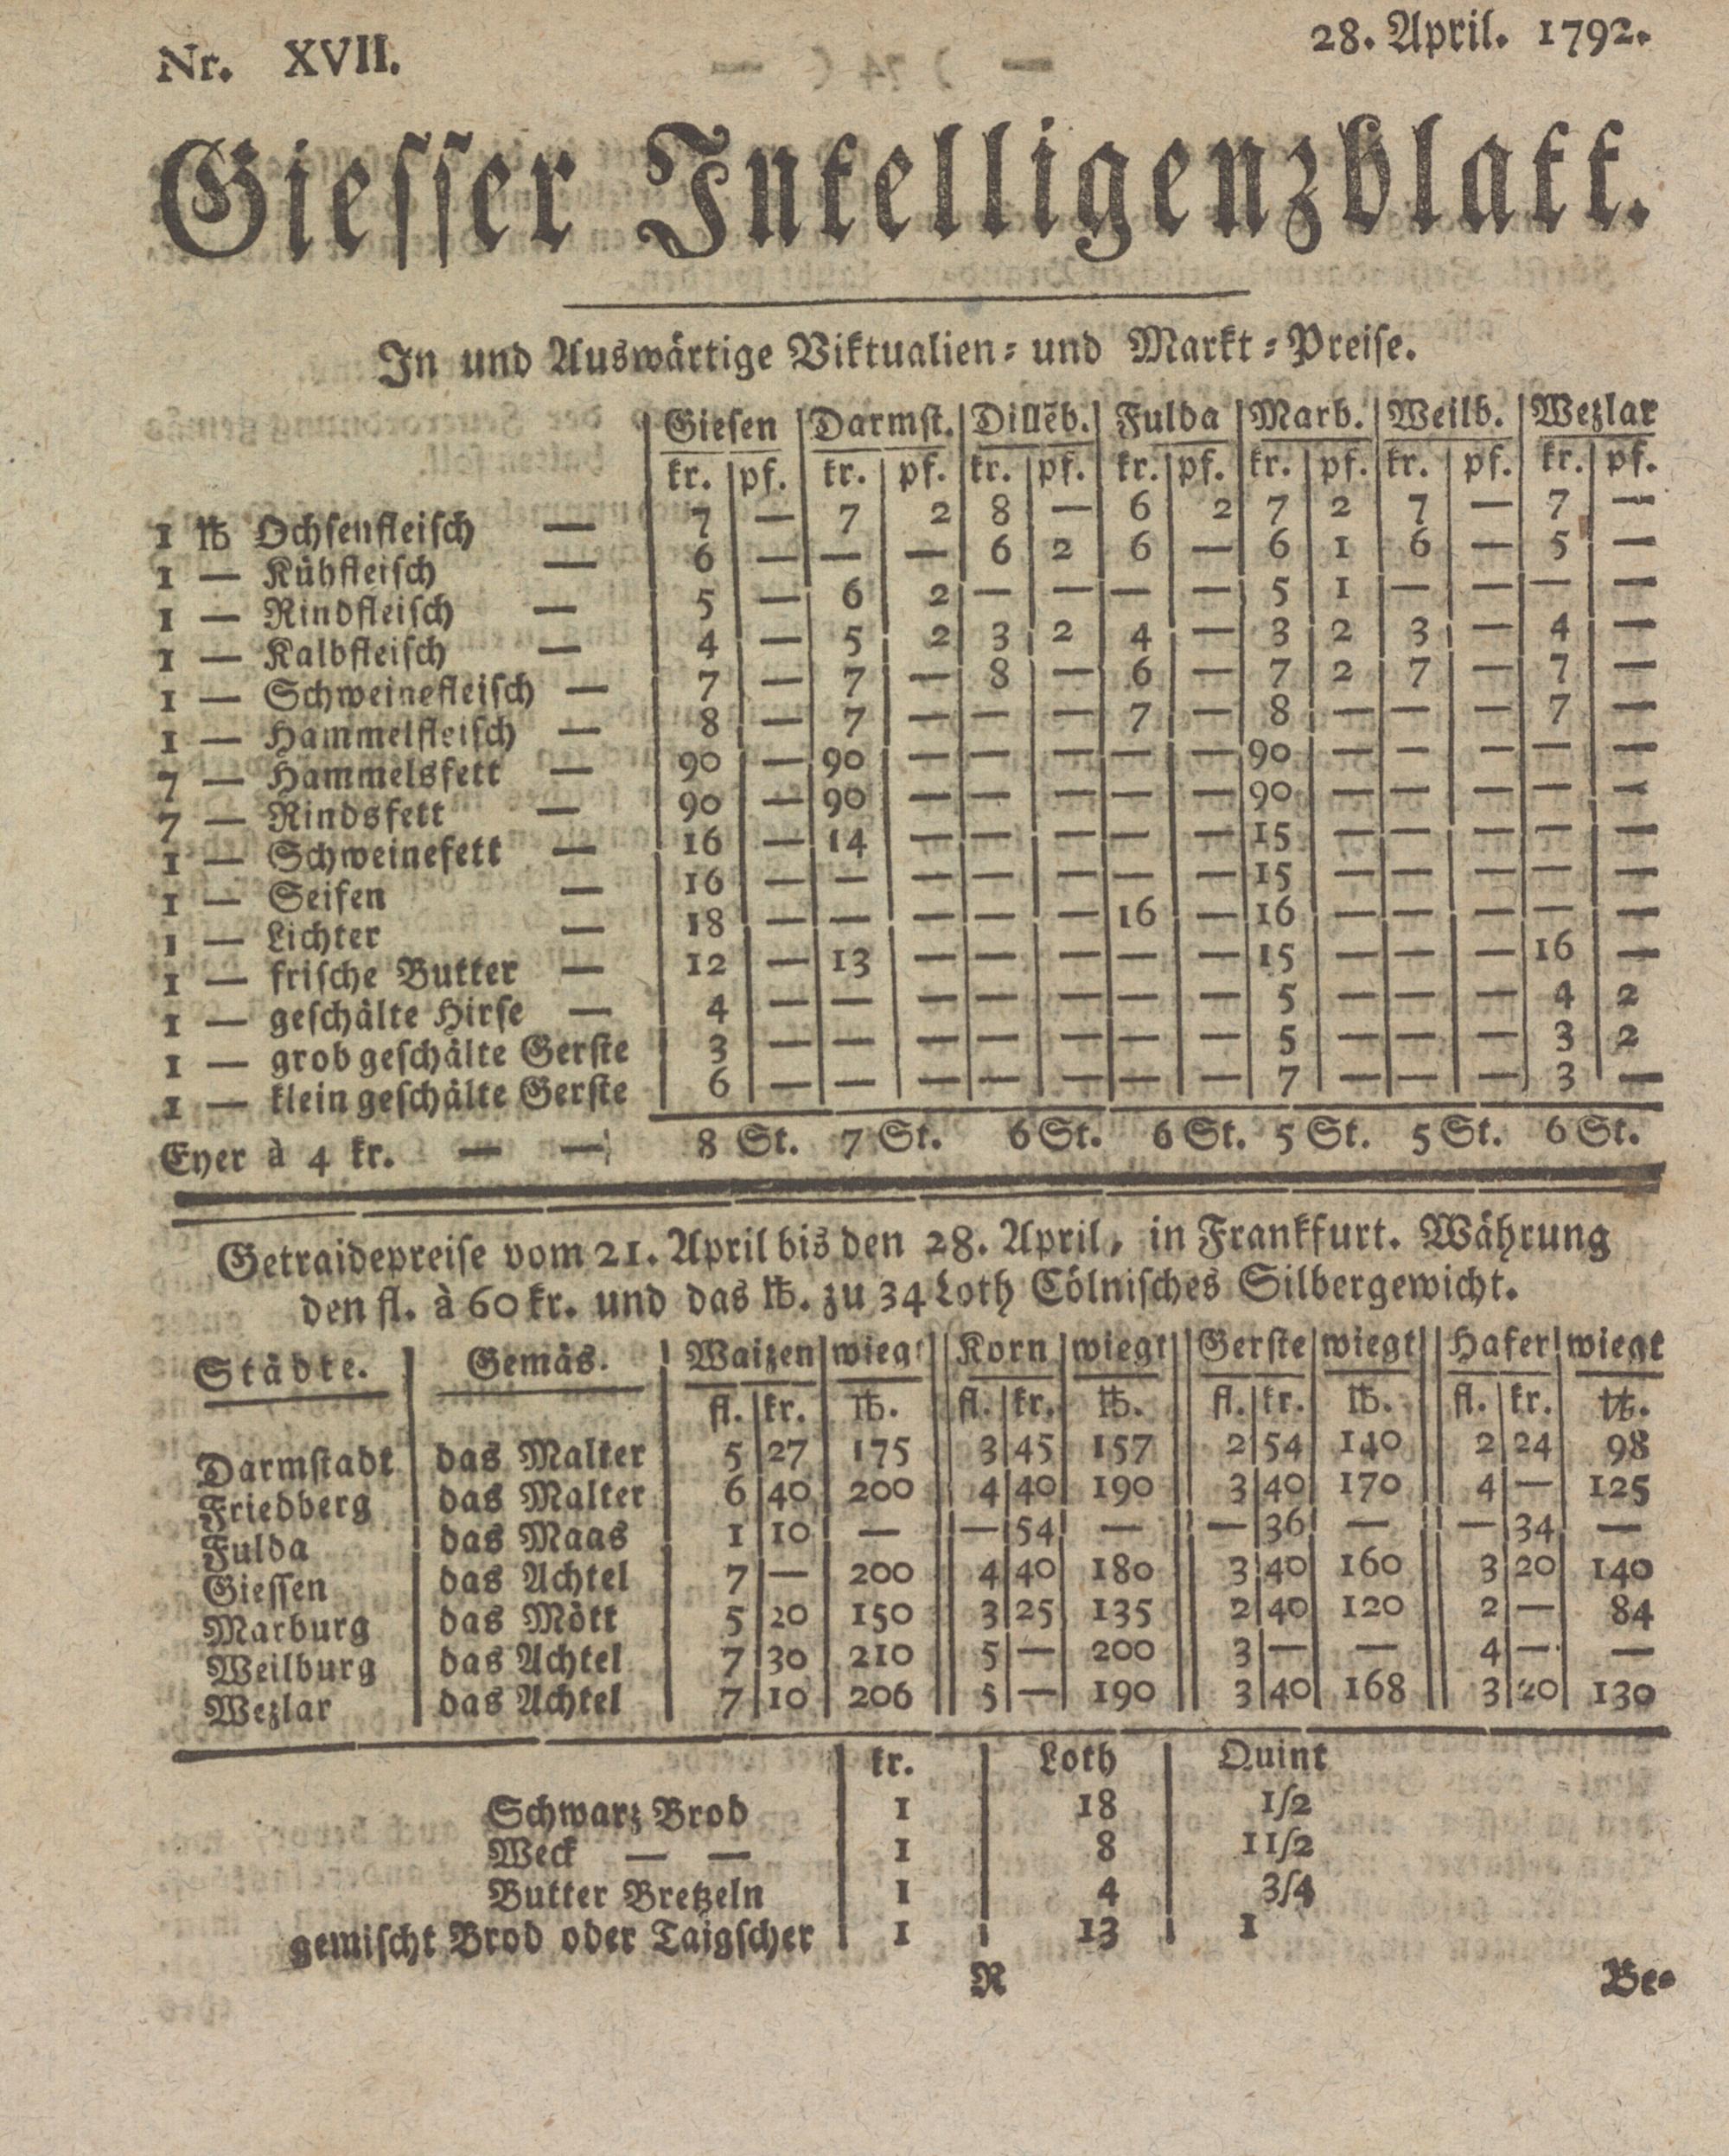 Nr. XVII.
28. April. 1792.
Giesser Intelligenzblatt.
In und Auswärtige Viktualien- und Markt-Preise.
Giesen Darmst. Dillēb. Fulda Marb. Weilb. Wezlar
kr. pf. kr. pf. kr. pf. kr. pf. kr. pf. kr. pf. kr. pf.
1 ℔ Ochsenfleisch — 7 — 7 2 8 — 6 2 7 2 7 — 7 —
1 — Kühfleisch — 6 — — — 6 2 6 — 6 1 6 — 5 —
1 — Rindfleisch — 5 — 6 2 — — — — 5 1 — — — —
1 — Kalbfleisch — 4 — 5 2 3 2 4 — 3 2 3 — 4 —
1 — Schweinefleisch — 7 — 7 — 8 — 6 — 7 2 7 — 7 —
1 — Hammelfleisch — 8 — 7 — — — 7 — 8 — — — 7 —
7 — Hammelsfett — 90 — 90 — — — — — 90 — — — — —
7 — Rindsfett — 90 — 90 — — — — — 90 — — — — —
1 — Schweinefett — 16 — 14 — — — — — 15 — — — — —
1 — Seifen — 16 — — — — — — — 15 — — — — —
1 — Lichter — 18 — — — — — 16 — 16 — — — — —
1 — frische Butter — 12 — 13 — — — — — 15 — — — 16 —
1 — geschälte Hirse — 4 — — — — — — — 5 — — — 4 2
1 — grob geschälte Gerste 3 — — — — — — — 5 — — — 3 2
1 — klein geschälte Gerste 6 — — — — — — — 7 — — — 3 —
Eyer à 4 kr. — — 8 St. 7 St. 6 St. 6 St. 5 St. 5 St. 6 St.
Getraidepreise vom 21. April bis den 28. April, in Frankfurt. Währung
den fl. à 60 kr. und das ℔. zu 34 Loth Cölnisches Silbergewicht.
Städte. Gemäs. Waizen wiegt Korn wiegt Gerste wiegt Hafer wiegt
fl. kr. ℔. fl. kr. ℔. fl. kr. ℔. fl. kr. ℔.
Darmstadt das Malter 5 27 175 3 45 157 2 54 140 2 24 98
Friedberg das Malter 6 40 200 4 40 190 3 40 170 4 — 125
Fulda das Maas 1 10 — — 54 — — 36 — — 34 —
Giessen das Achtel 7 — 200 4 40 180 3 40 160 3 20 140
Marburg das Mött 5 20 150 3 25 135 2 40 120 2 — 84
Weilburg das Achtel 7 30 210 5 — 200 3 — — 4 — —
Wezlar das Achtel 7 10 206 5 — 190 3 40 168 3 20 130
kr. Loth Quint
Schwarz Brod 1 18 1/2
Weck — — 1 8 1 1/2
Butter Bretzeln 1 4 3/4
gemischt Brod oder Taigscher 1 13 1
R
Be-